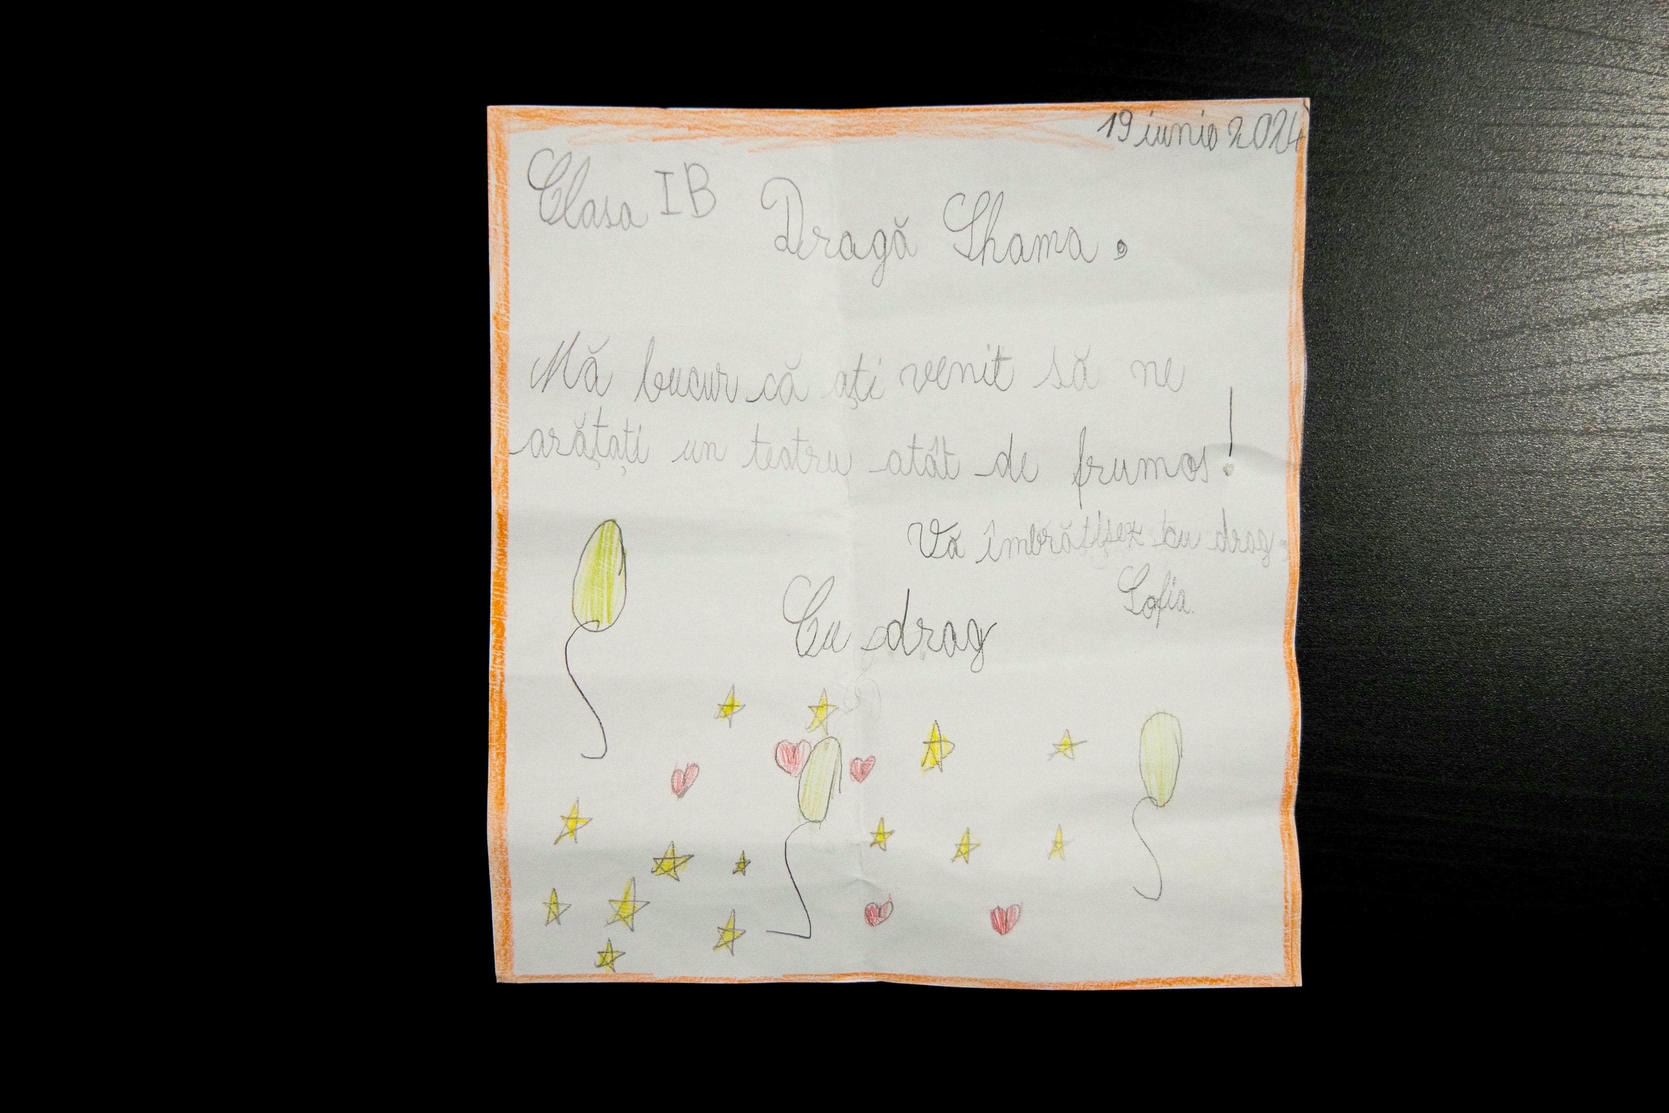 19 iunie 2024
Clasa IB
Dragă Shama.
Mă bucur că ați venit să ne
arătați un teatru atât de frumos!
Vă îmbrățișez cu drag.
Sofia.
Cu drag